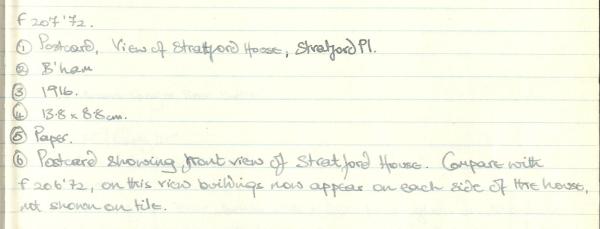 F207'72.
① Postcard, View of Stratford House, Stratford Pl.
② B'ham
③ 1916.
④ 13.8 x 8.8cm.
⑤ Paper.
⑥ Postcard showing front view of Stratford House. Compare with
F206'72, on this view buildings now appear on each side of the house,
not shown on tile.